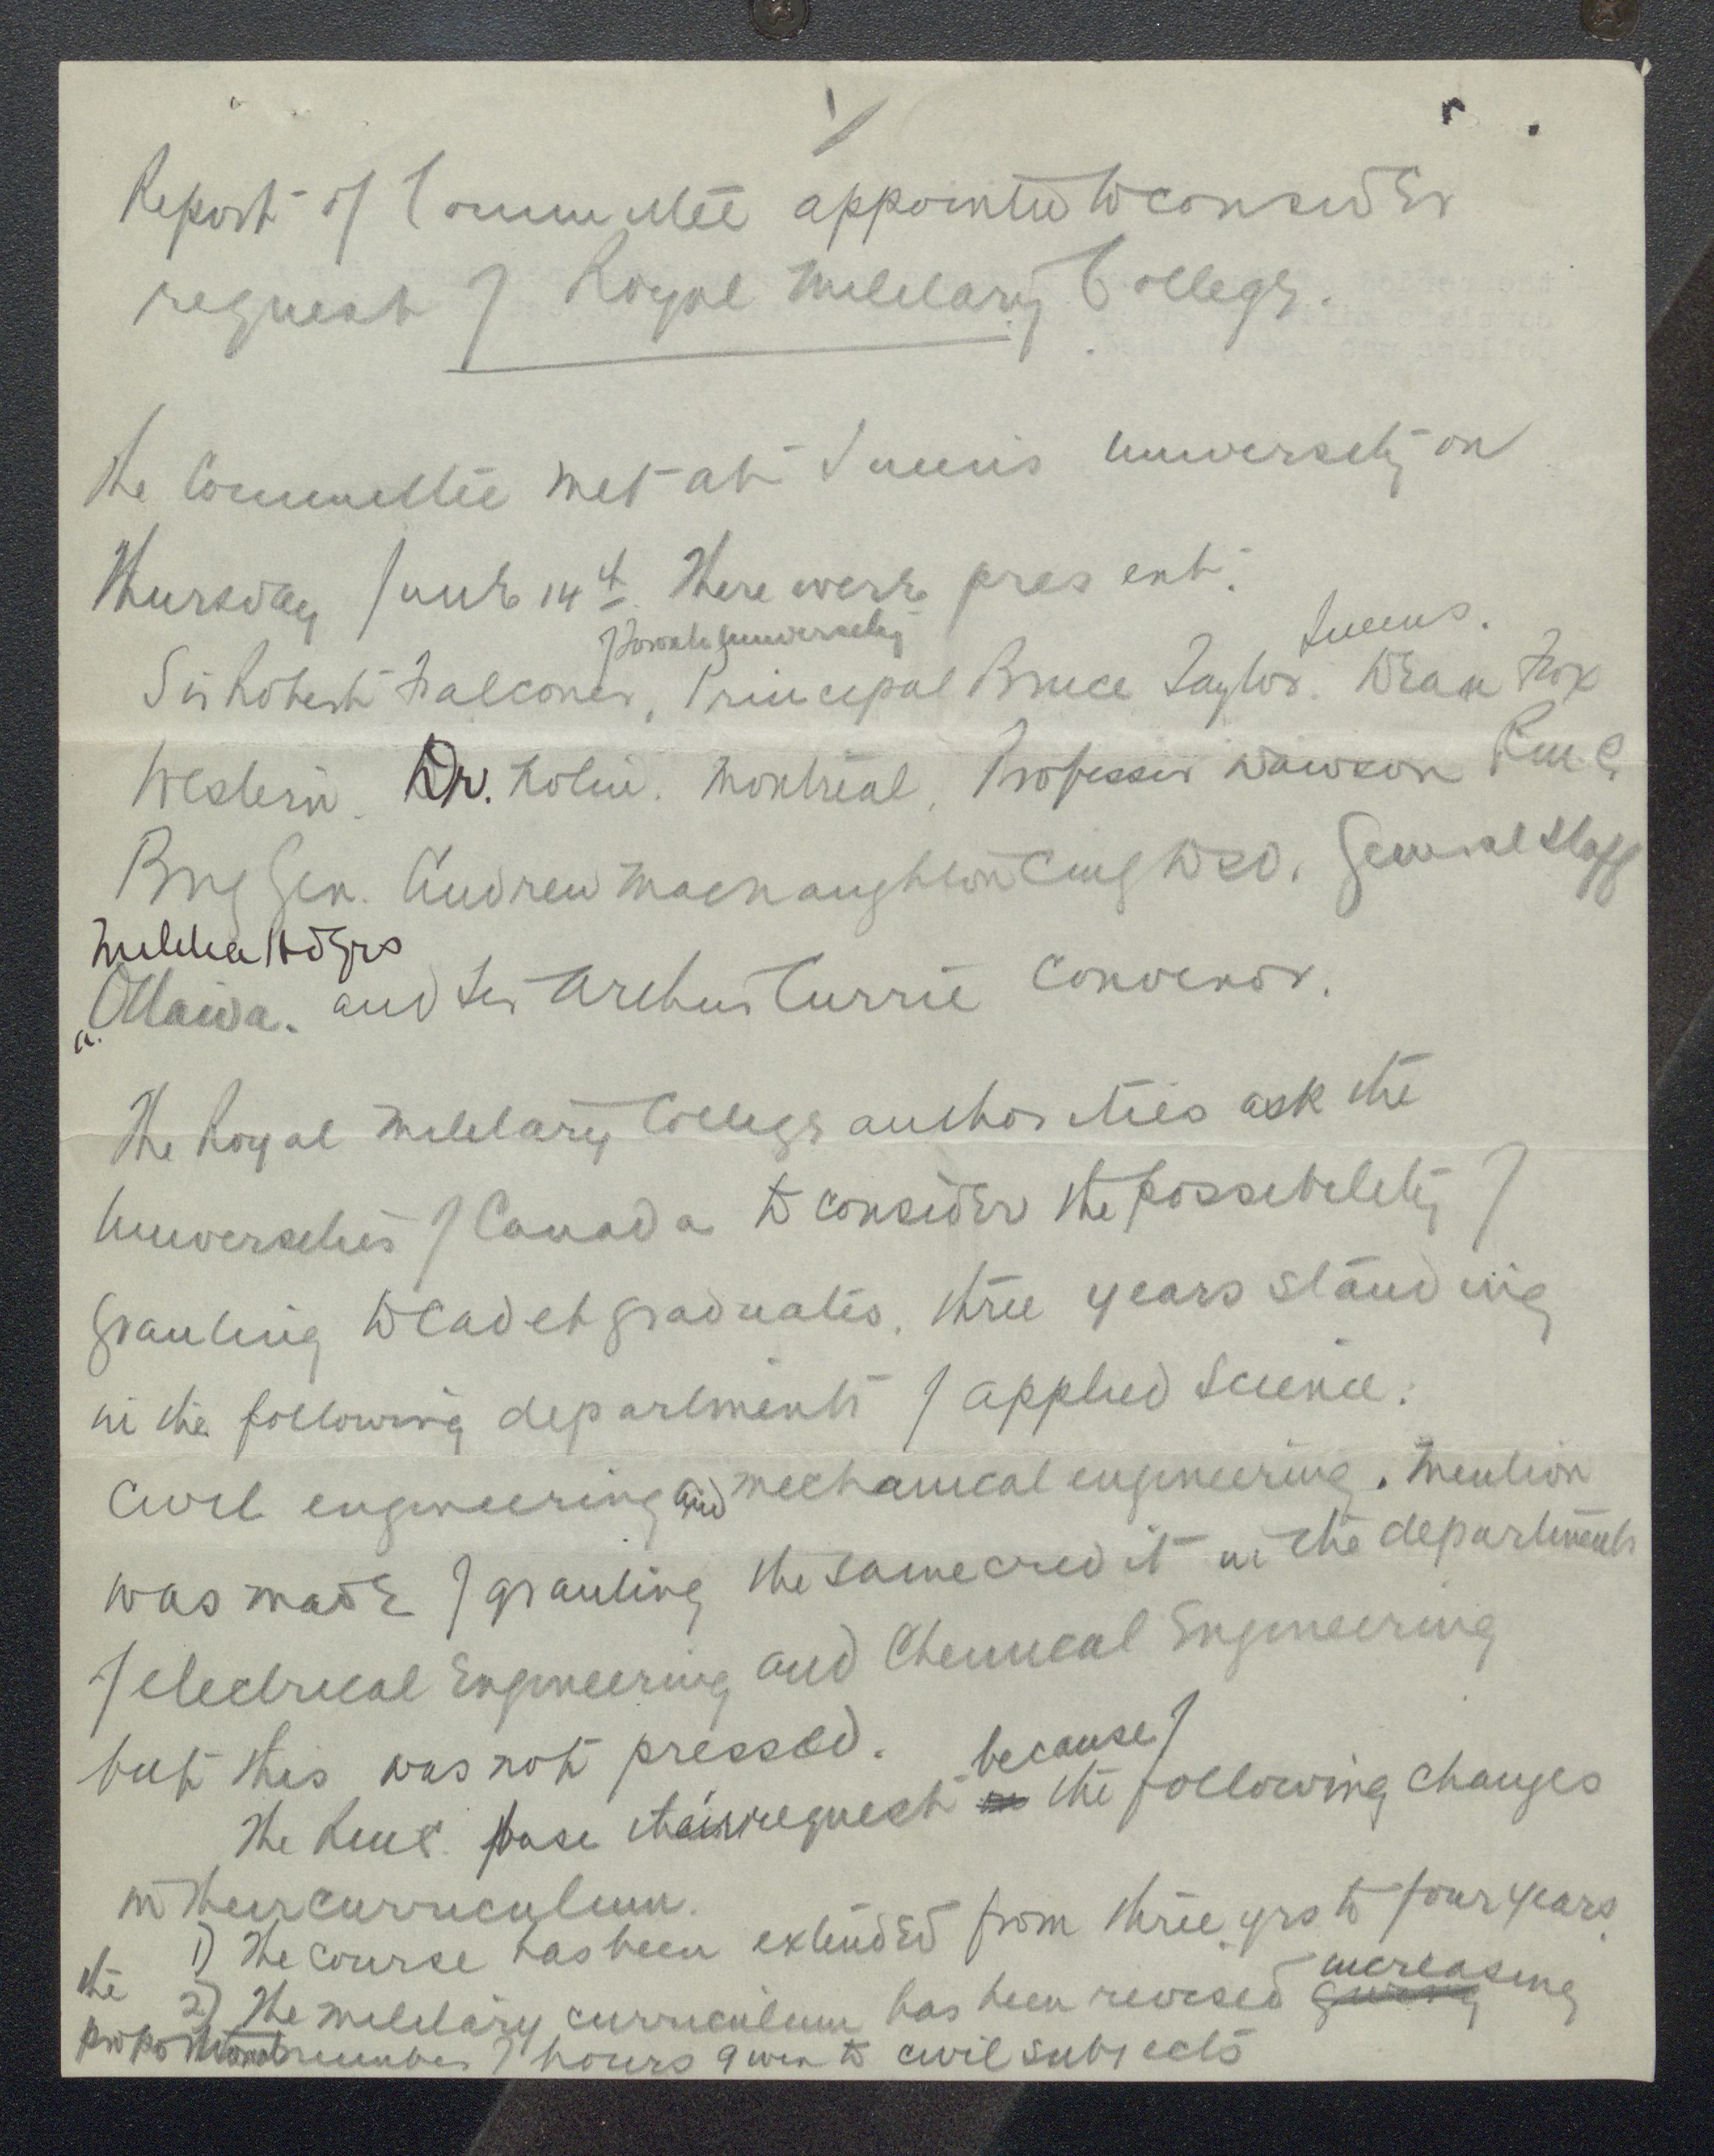 Report of Committee appointed to consider
request of Royal Military College.
The Committee met at Queens University on
Thursday June 14th. There were present:
of Toronto University
Queens.
Sir Robert Falconer, Principal Bruce Taylor. Dean Fox
Western. Dr. Montreal, Professor Dawson R.M.C.
Brig Gen. Andrew Macnaughton Cmg DSO. General Staff
Militia Hdqrs
Ottawa. and Sir Arthur Currie Convenor.
The Royal Military College authorities ask the
Universities of Canada to consider the possibility of
granting to Cadet graduates. three years standing
in the following departments of applied Science:
Civil engineering and mechanical engineering. Mention
was made of granting the same credit in the departments
of electrical Engineering and Chemical Engineering
but this was not pressed.
because of
The R.M.C. base their request the following changes
in their curriculum.
1) The course has been extended from three yrs to four years.
increasing
2) The military curriculum has been revised giving
the
proportional number of hours given to civil subjects